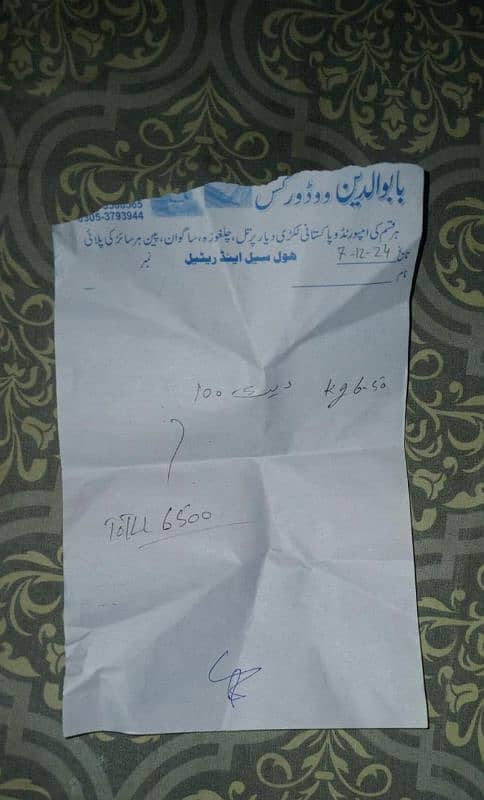 بابوالدین ووڈ ورکس
0305-3793944
ہر قسم کی امپورٹڈ و پاکستانی لکڑی دیار، پرتل، چلغوزہ، ساگوان، پین ہر سائز کی پلائی
ھول سیل اینڈ ریٹیل
تاریخ 7-12-24
نمبر
نام
kg 6-50 100
Total 6500